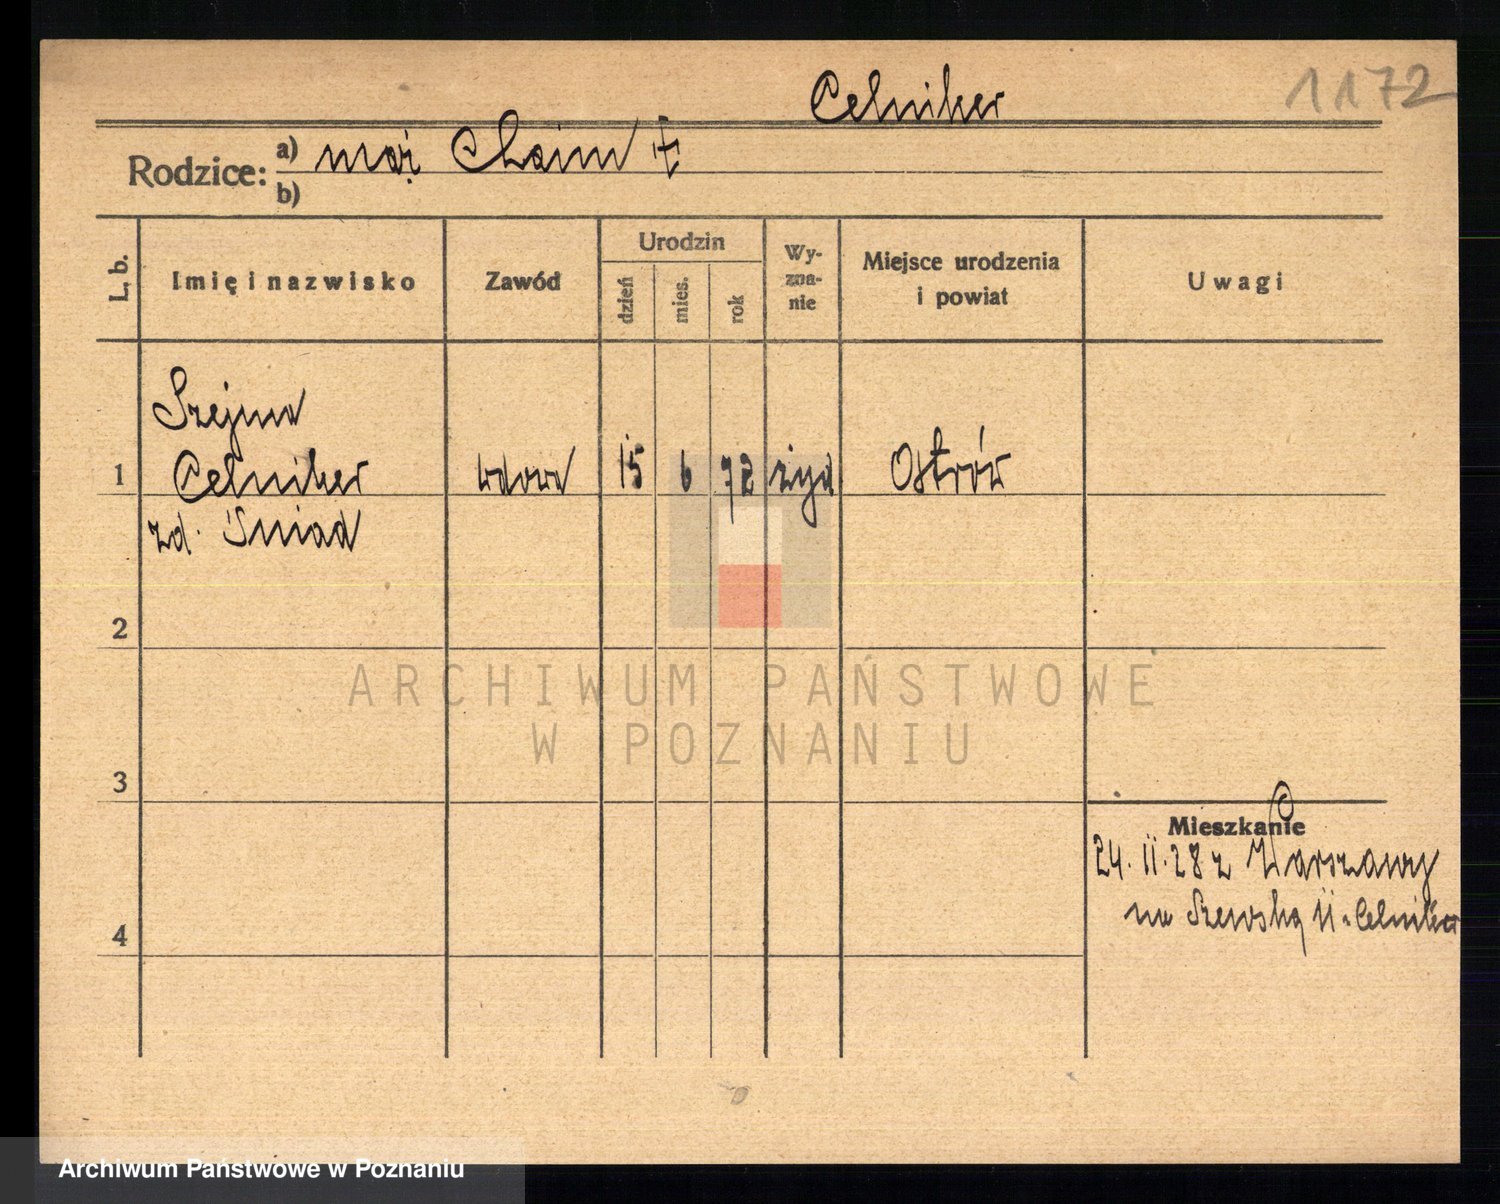 1172
Celniker
Rodzice: a) mąż Chaim
b)
L. b.
Imię i nazwisko
Zawód
Urodzin
dzień
mies.
rok
Wy-
zna-
nie
Miejsce urodzenia
i powiat
Uwagi
Szejna
1 Celniker wdowa 15 6 72 żyd Ostrów
zd. Śniad
2
3
4
Mieszkanie
24. II. 28 z Warszawy
na Szewską 11 Celniker
ARCHIWUM PAŃSTWOWE
W POZNANIU
Archiwum Państwowe w Poznaniu